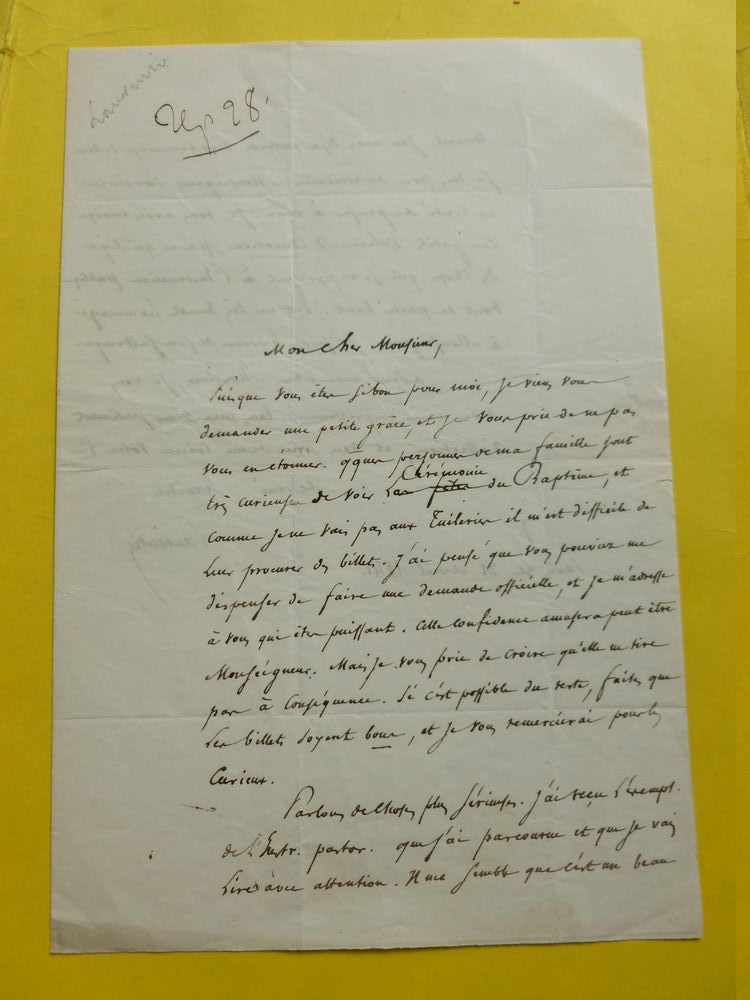 28
Mon cher Monsieur,
Puisque vous êtes si bon pour moi, je viens vous
demander une petite grâce, et je vous prie de ne pas
vous en étonner. qqnes personnes de ma famille sont
très curieuses de voir la Cérémonie du Baptême, et
comme je ne vais pas aux Tuileries il m'est difficile de
leur procurer des billets. J'ai pensé que vous pouviez me
dispenser de faire une demande officielle, et je m'adresse
à vous qui êtes puissant. Cette confidence amusera peut être
Monseigneur. Mais je vous prie de croire qu'elle ne tire
pas à conséquence. Si c'est possible du reste, faites que
les billets soyent bons, et je vous remercierai pour les
curieux.
Parlons de choses plus sérieuses. J'ai reçu l'exempl.
de l'Instr. pastor. que j'ai parcourue et que je vais
lire avec attention. Il me semble que c'est un beau